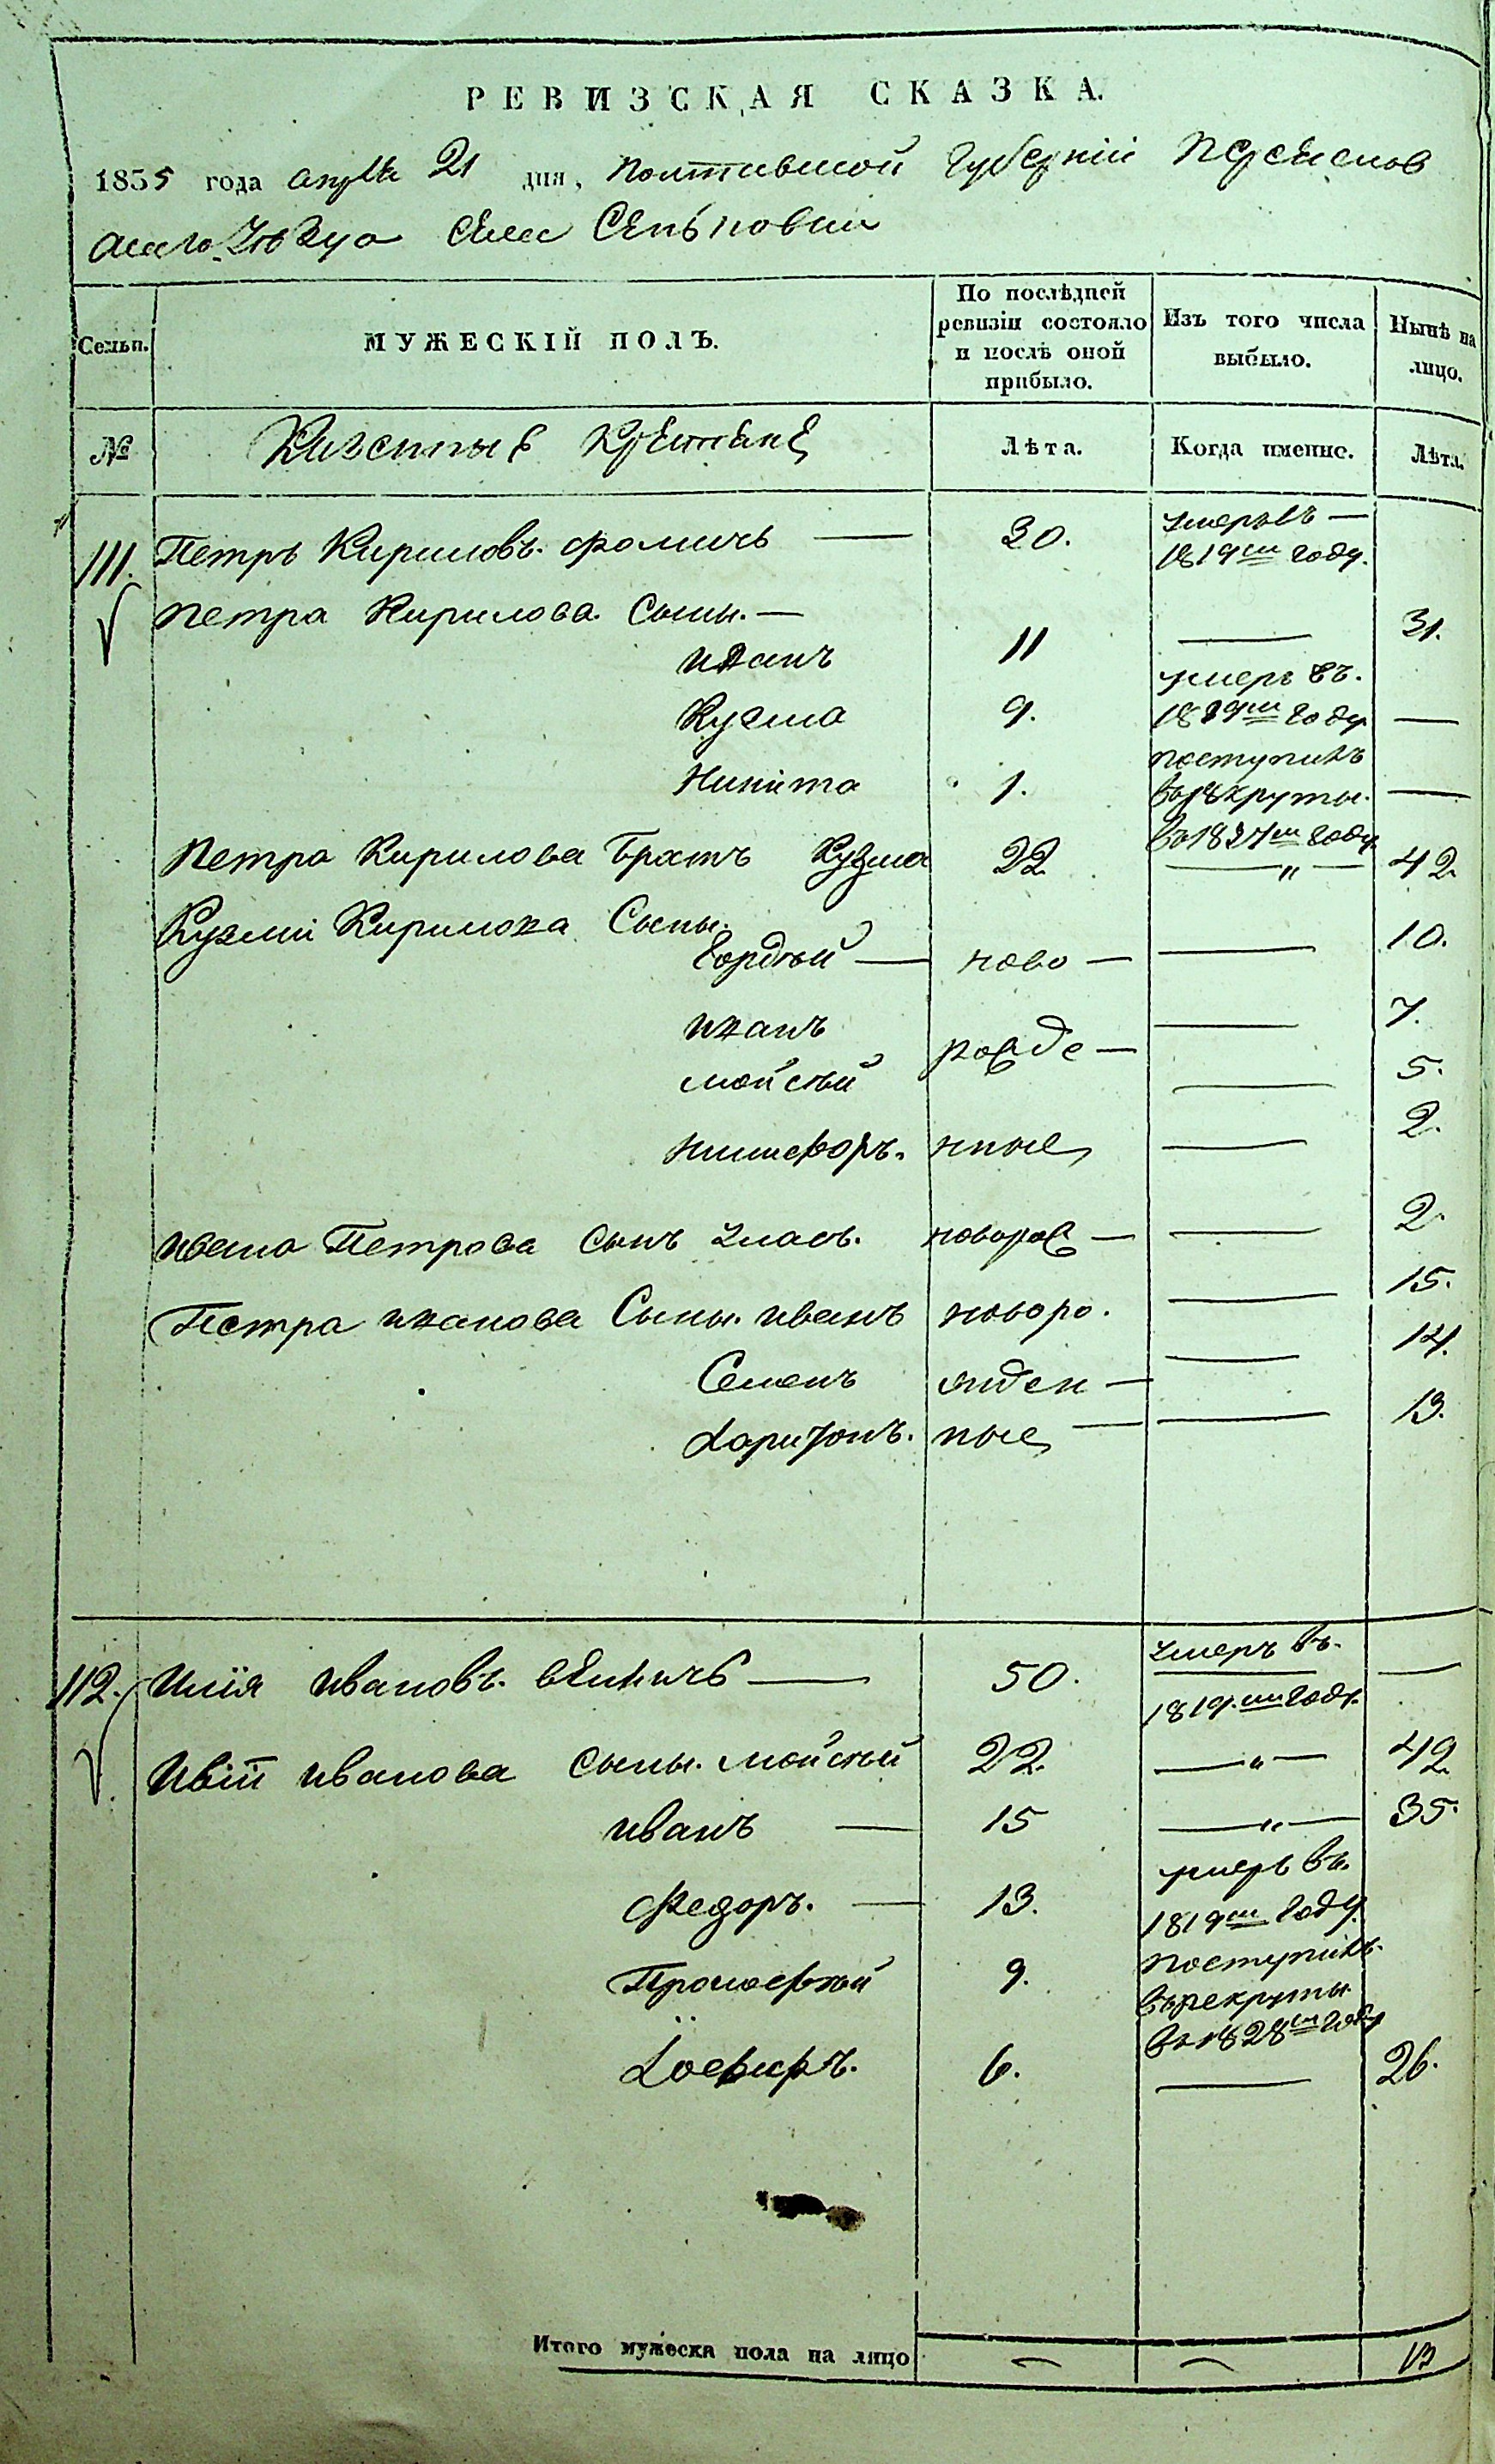 РЕВИЗСКАЯ СКАЗКА.
1835 года апреля 21 дня, Полтавской Губерніи Переяслов
скаго Уѣзда Села Сеньковки
Семьи. МУЖЕСКІЙ ПОЛЪ. По послѣдней ревизіи состояло и послѣ оной прибыло. Изъ того числа выбыло. Нынѣ на лицо.
№ Казенные Крестьяне Лѣта. Когда именно. Лѣта.
111. Петръ Кириловъ. Фомичъ — 30. умеръ въ — 1819м году.
Петра Кирилова Сыны. —
Иванъ 11 — 31.
Кузма 9. умеръ въ. 1819м году —
Никита 1. поступилъ въ рекруты. в 1827м году —
Петра Кирилова Братъ Кузма 22 — " — 42.
Кузми Кирилова Сыны.
Гордѣй — ново — — 10.
Иванъ — 7.
рожде —
Мойсѣй — 5.
Никифоръ. нные — 2.
Ивана Петрова сынъ Власъ. поворож — — 2.
Петра Иванова Сыны. Иванъ новоро. — 15.
Семенъ жден — — 14.
Харитонъ. ные — — 13.
112. Илія Ивановъ. — 50. умеръ въ. 1819.м году. —
Иліи Иванова сыны. Мойсѣй 22. — " — 42.
Иванъ — 15 — " — 35.
Федоръ. — 13. умеръ въ. 1819м году.
Прокофѣй 9. поступилъ. въ рекруты в 1828м году
6. — 26.
Итого мужеска пола на лицо — — 13